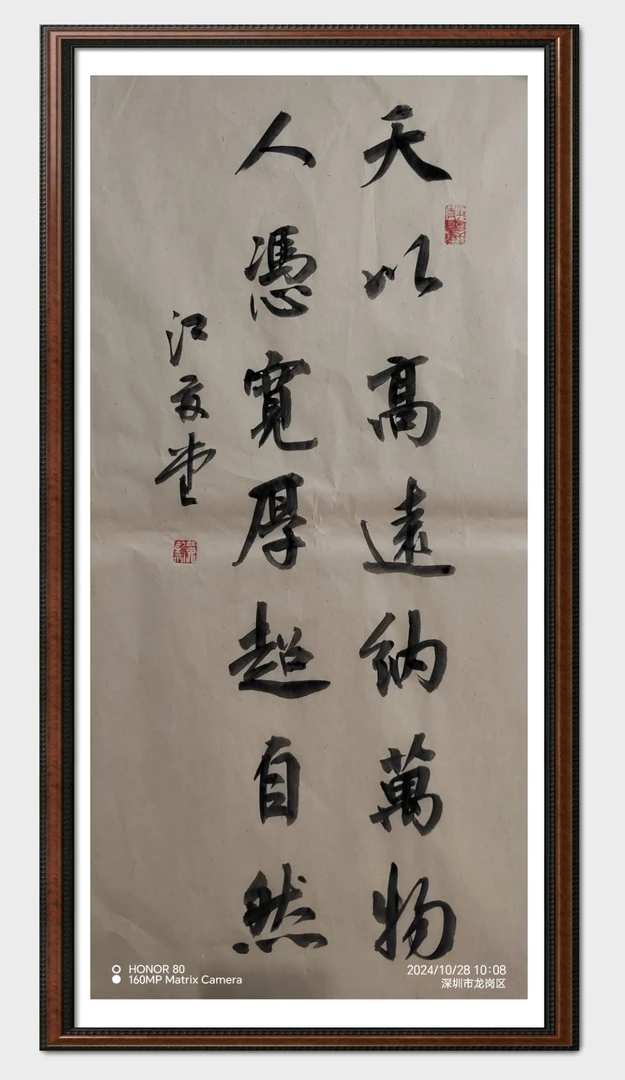 天以高遠納萬物
人憑寬厚超自然
HONOR 80
160MP Matrix Camera
2024/10/28 10:08
深圳市龙岗区